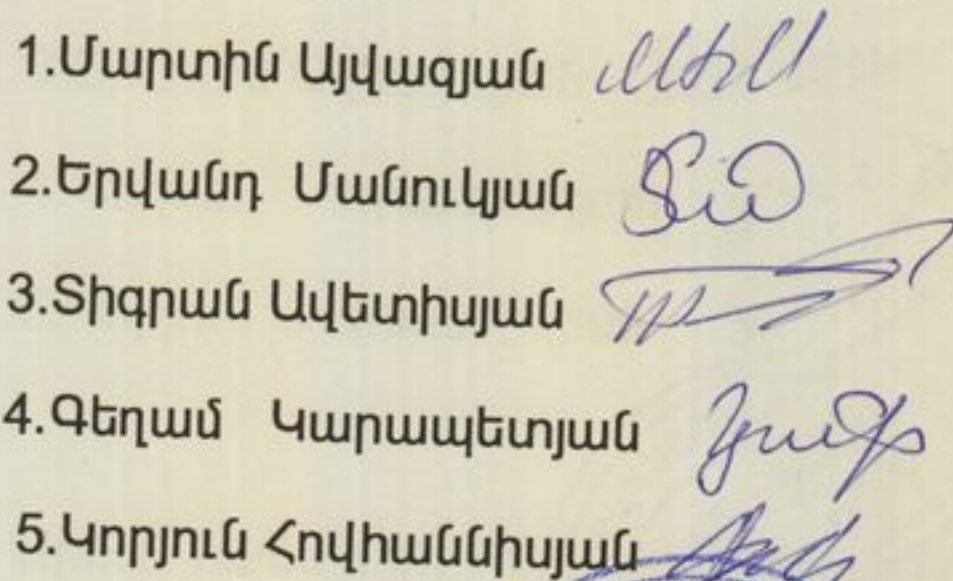 1.Մարտին Այվազյան
2.Երվանդ Մանուկյան
3.Տիգրան Ավետիսյան
4.Գեղամ Կարապետյան
5.Կորյուն Հովհաննիսյան